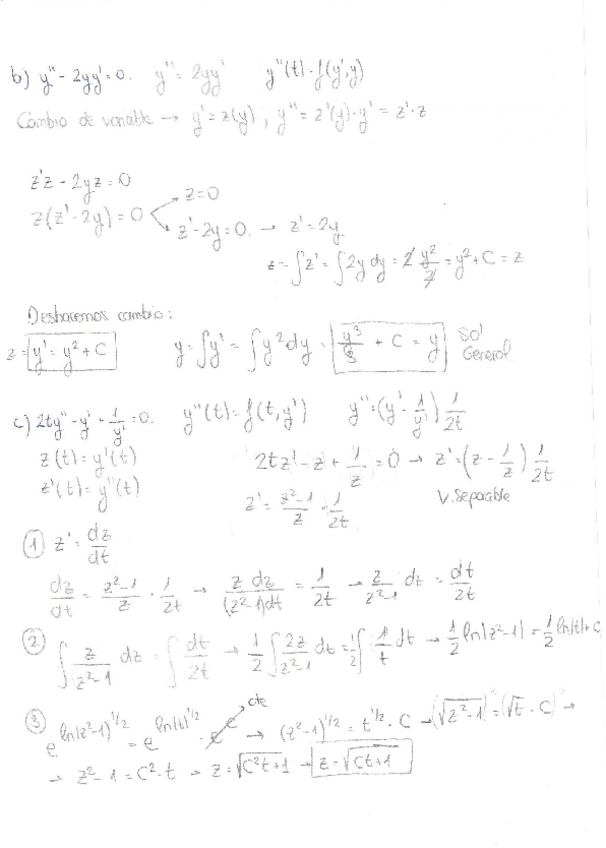 b) y'' - 2yy' = 0. y'' = 2yy' y''(t) = f(y', y)
Cambio de variable → y' = z(y), y'' = z'(y)·y' = z'·z
z'z - 2yz = 0
z(z' - 2y) = 0 → z = 0
→ z' - 2y = 0. → z' = 2y
z = ∫z' = ∫2y dy = 2 y²/2 = y² + C = z
Deshacemos cambio:
z = y' = y² + C y = ∫y' = ∫y² dy = y³/3 + C = y Sol General
c) 2ty'' - y' + 1/y' = 0. y''(t) = f(t, y') y'' = (y' - 1/y') 1/2t
z(t) = y'(t) 2tz' - z + 1/z = 0 → z' = (z - 1/z) 1/2t
z'(t) = y''(t) z' = z²-1/z · 1/2t V. Separable
① z' = dz/dt
dz/dt = z²-1/z · 1/2t → z dz/(z²-1)dt = 1/2t → z/z²-1 dz = dt/2t
② ∫ z/z²-1 dz = ∫ dt/2t → 1/2 ∫ 2z/z²-1 dz = 1/2 ∫ 1/t dt → 1/2 ln|z²-1| = 1/2 ln|t| + C
③ e^ln|z²-1|^1/2 = e^ln|t|^1/2 · e^c → cte → (z²-1)^1/2 = t^1/2 · C → (√z²-1)² = (√t · C)² →
→ z² - 1 = C²·t → z = √C²t+1 → z = √Ct+1